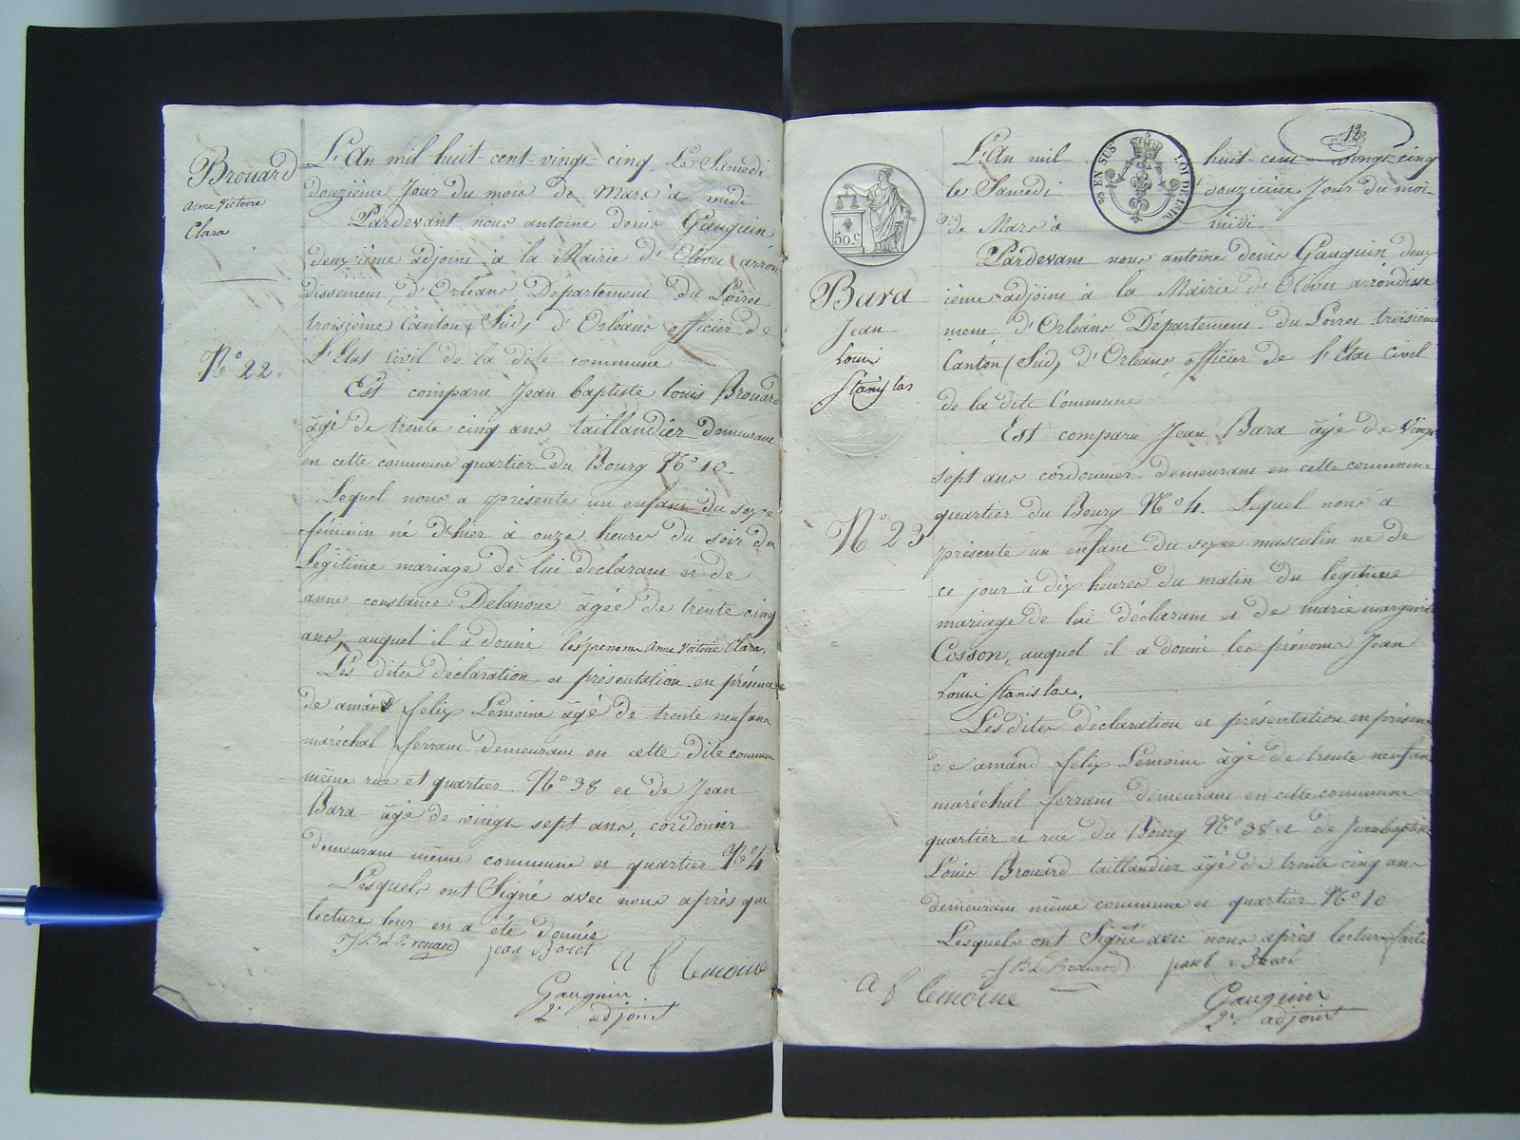 Brouard
anne Victoire
Clara
N.º 22.
L'An mil huit cent vingt cinq Le Samedi
douzième Jour du mois de Mars à midi
Pardevant nous antoine denis Gauguin
deuxième adjoint à la Mairie d'Olivet arron
dissement d'Orléans Département du Loiret
troisième Canton (Sud) d'Orléans officier de
L'Etat Civil de la dite commune
Est comparu Jean baptiste louis Brouard
âgé de trente cinq ans taillandier demeurant
en cette commune quartier du Bourg Nº 10
Lequel nous a présenté un enfant du sexe
féminin né d'hier à onze heures du soir du
Légitime mariage de lui déclarant et de
anne constance Delanoue âgée de trente cinq
ans, auquel il a donné les prenoms Anne Victoire Clara.
Les dites déclaration et présentation en présence
de amand felix Lemoine âgé de trente neuf ans
maréchal ferrant demeurant en cette dite commune
même rue et quartier Nº 38 et de Jean
Bara âgé de vingt sept ans, cordonier
demeurant même commune et quartier Nº 4
Lesquels ont Signé avec nous après que
lecture leur en a été donnée
J B L Brouard
A f lemoine
Gauguin
2e adjoint
12
50 c
EN SUS
LOI DE 1816
Bara
Jean
Louis
Stanislas
Nº 23
L'An mil huit cent vingt cinq
le Samedi douzième Jour du moi
de Mars à midi
Pardevant nous antoine denis Gauguin deux
ième adjoint à la Mairie d'Olivet arrondisse
ment d'Orléans Département du Loiret troisieme
Canton (Sud) d'Orléans officier de l'Etat Civil
de la dite Commune
Est comparu Jean Bara âgé de Vingt
sept ans cordonnier demeurant en cette commune
quartier du Bourg Nº 4. Lequel nous a
présenté un enfant du sexe masculin né de
ce jour à dix heures du matin du legitime
mariage de lui déclarant et de marie marguerite
Cosson, auquel il a donné les prénoms Jean
Louis Stanislas.
Les dites déclaration et présentation en présence
de amand felix Lemoine âgé de trente neuf ans
maréchal ferrant demeurant en cette commune
quartier et rue du Bourg Nº 38 et de Jean baptiste
Louis Brouard taillandier âgé de trente cinq ans
demeurant même commune et quartier Nº 10
Lesquels ont Signé avec nous après lecture faite
J B L Brouard
A f lemoine
Gauguin
2e adjoint